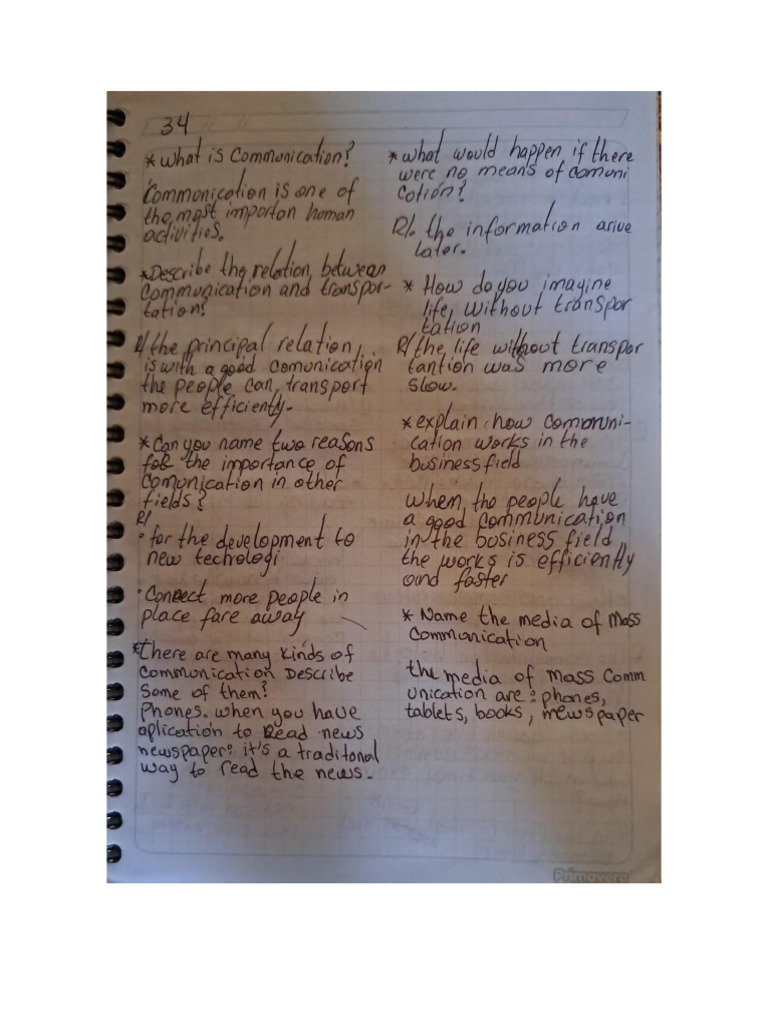 34
* What is Communication?
Communication is one of
the most importon human
activities.
* Describe the relation between
communication and transpor-
tation?
R/ the principal relation
is with a good comunication
the people can, transport
more efficiently.
* Can you name two reasons
for the importance of
comunication in other
fields?
R/
• for the development to
new techologi
• Connect more people in
place fare away
* there are many kinds of
communication Describe
some of them?
Phones. when you have
aplication to Read news
newspaper: it's a traditonal
way to read the news.
* what would happen if there
were no means of comuni
cation?
R/. the information arive
later.
* How do you imagine
life, without transpor
tation
R/ the life without transpor
tantion was more
slow.
* explain how communi-
cation works in the
business field
When, the people have
a good communication
in the business field,
the works is efficiently
and faster
* Name the media of Mass
Communication
the media of mass Comm
unication are: phones,
tablets, books, newspaper
Primavera